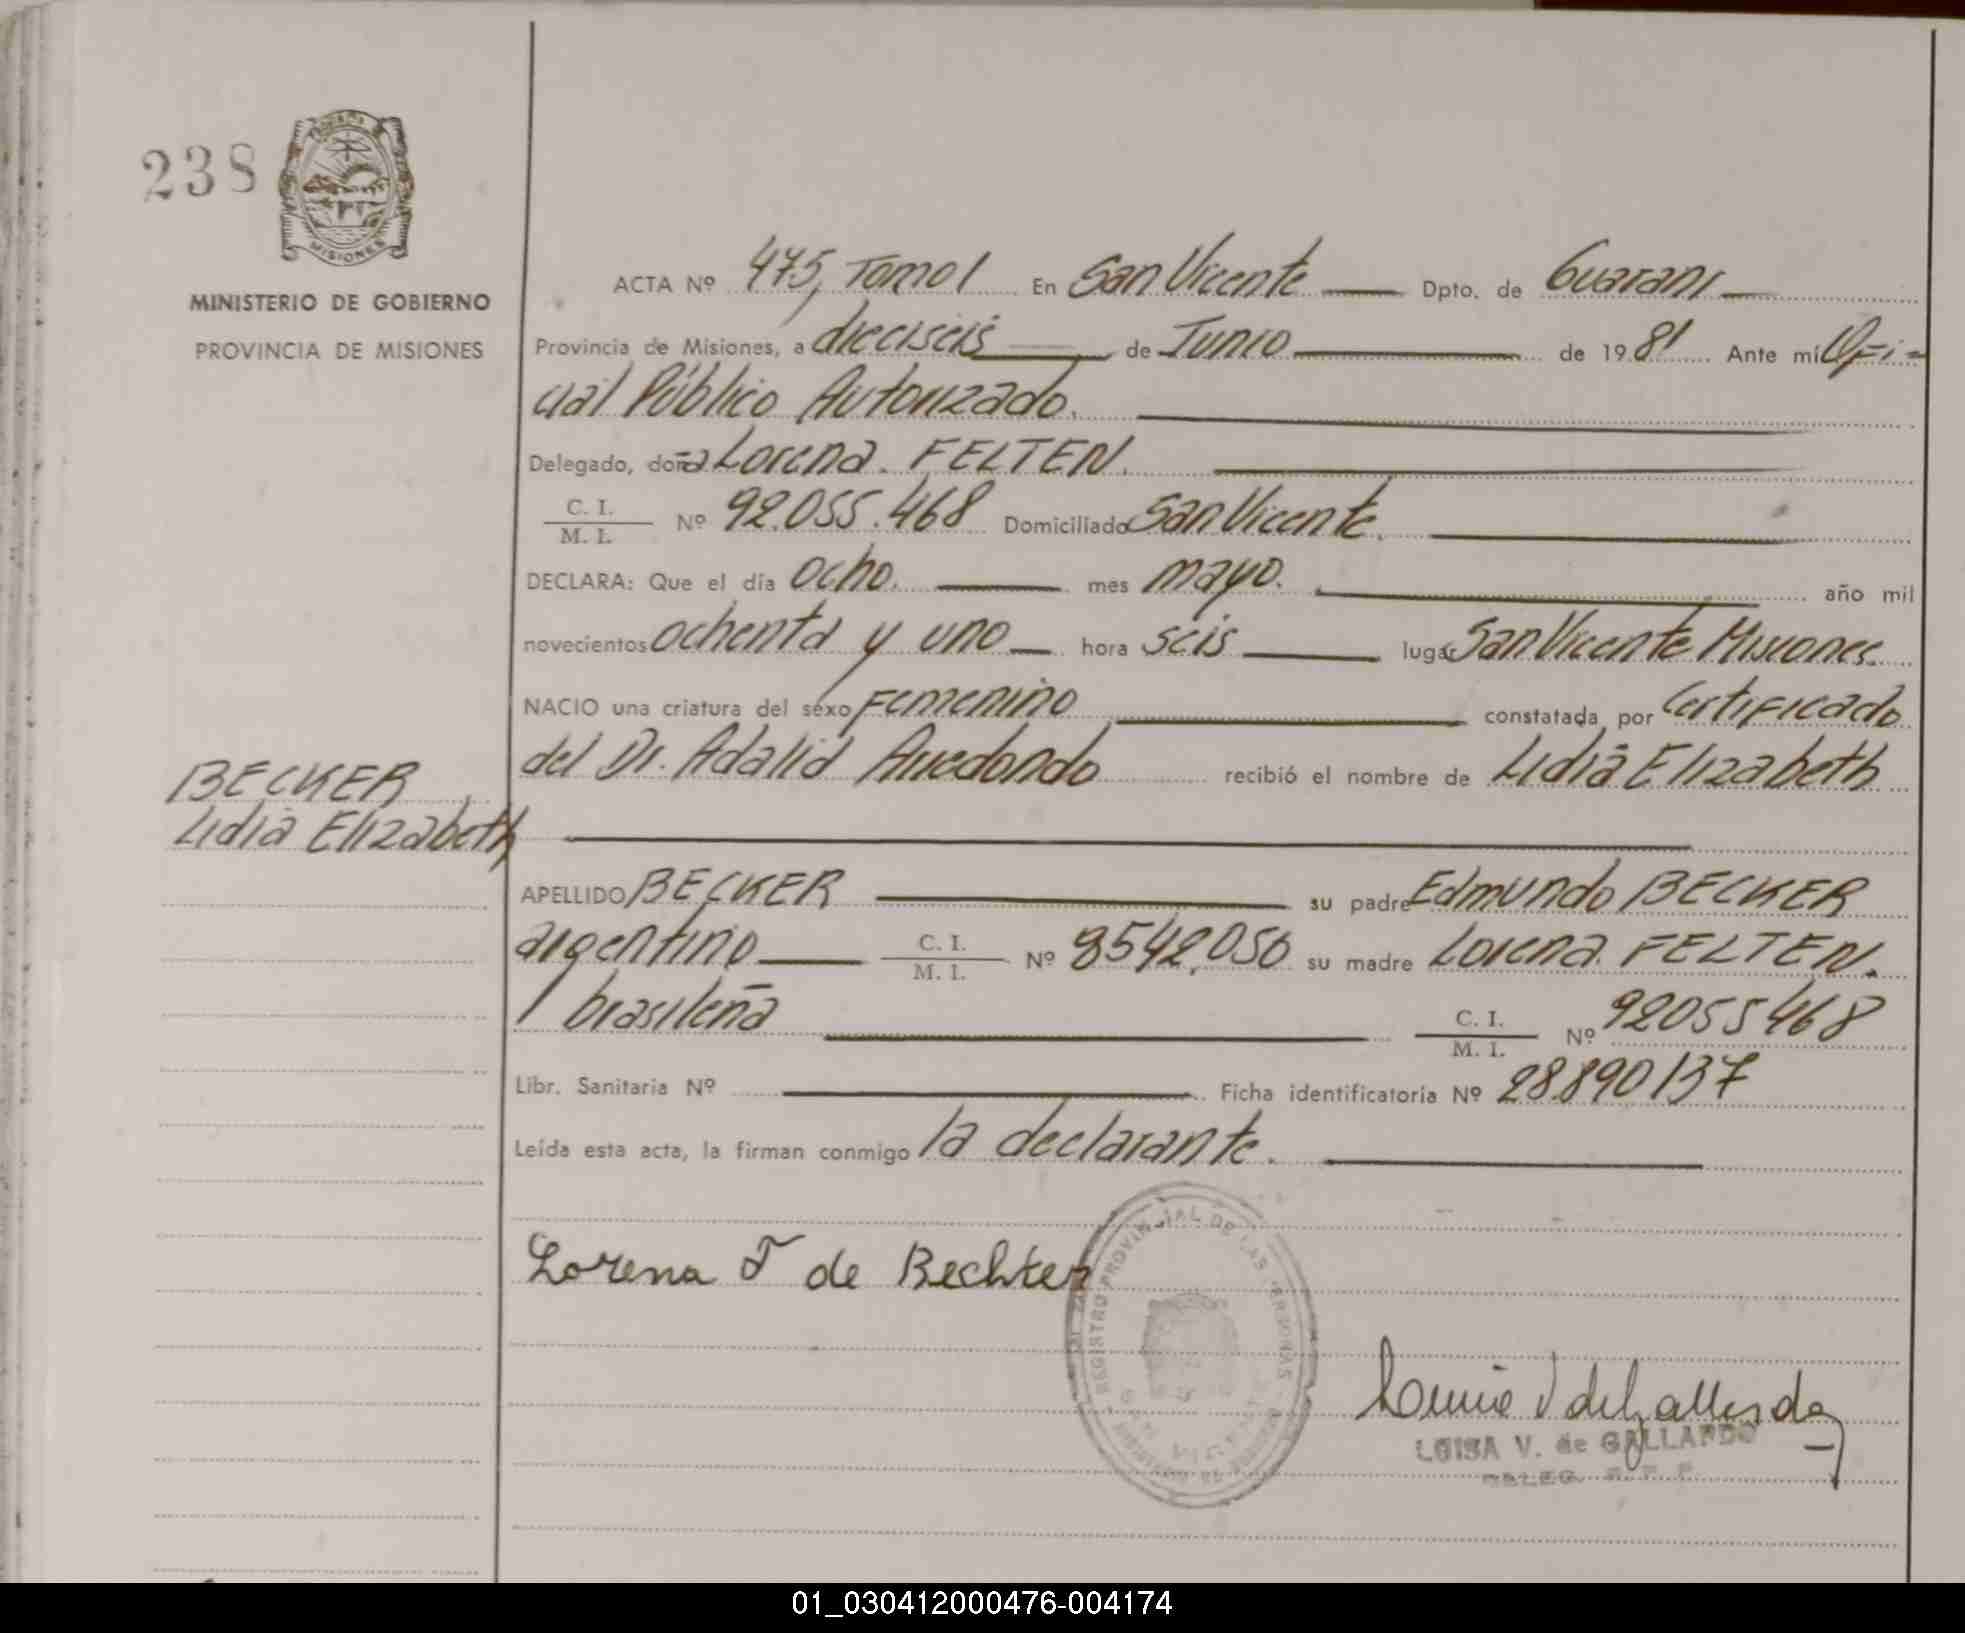 238
MISIONES
MINISTERIO DE GOBIERNO
PROVINCIA DE MISIONES
ACTA Nº 475, Tomo I En San Vicente Dpto. de Guaraní
Provincia de Misiones, a dieciseis de Junio de 1981 Ante mí Ofi-
cial Público Autorizado.
Delegado, doña Lorena. FELTEN.
C. I.
M. I. Nº 92.055.468 Domiciliado San Vicente.
DECLARA: Que el día ocho. mes mayo. año mil
novecientos ochenta y uno hora seis lugar San Vicente Misiones.
NACIO una criatura del sexo Femenino constatada por Certificado
del Dr. Adalid Arredondo recibió el nombre de Lidia Elizabeth
BECKER
Lidia Elizabeth
APELLIDO BECKER su padre Edmundo BECKER
argentino C. I.
M. I. Nº 8542.050 su madre Lorena. FELTEN.
brasileña C. I.
M. I. Nº 92055468
Libr. Sanitaria Nº Ficha identificatoria Nº 28.890137
Leída esta acta, la firman conmigo la declarante.
Lorena F de Bechter
REGISTRO PROVINCIAL DE LAS PERSONAS
LUISA V. de GALLARDO
01_030412000476-004174